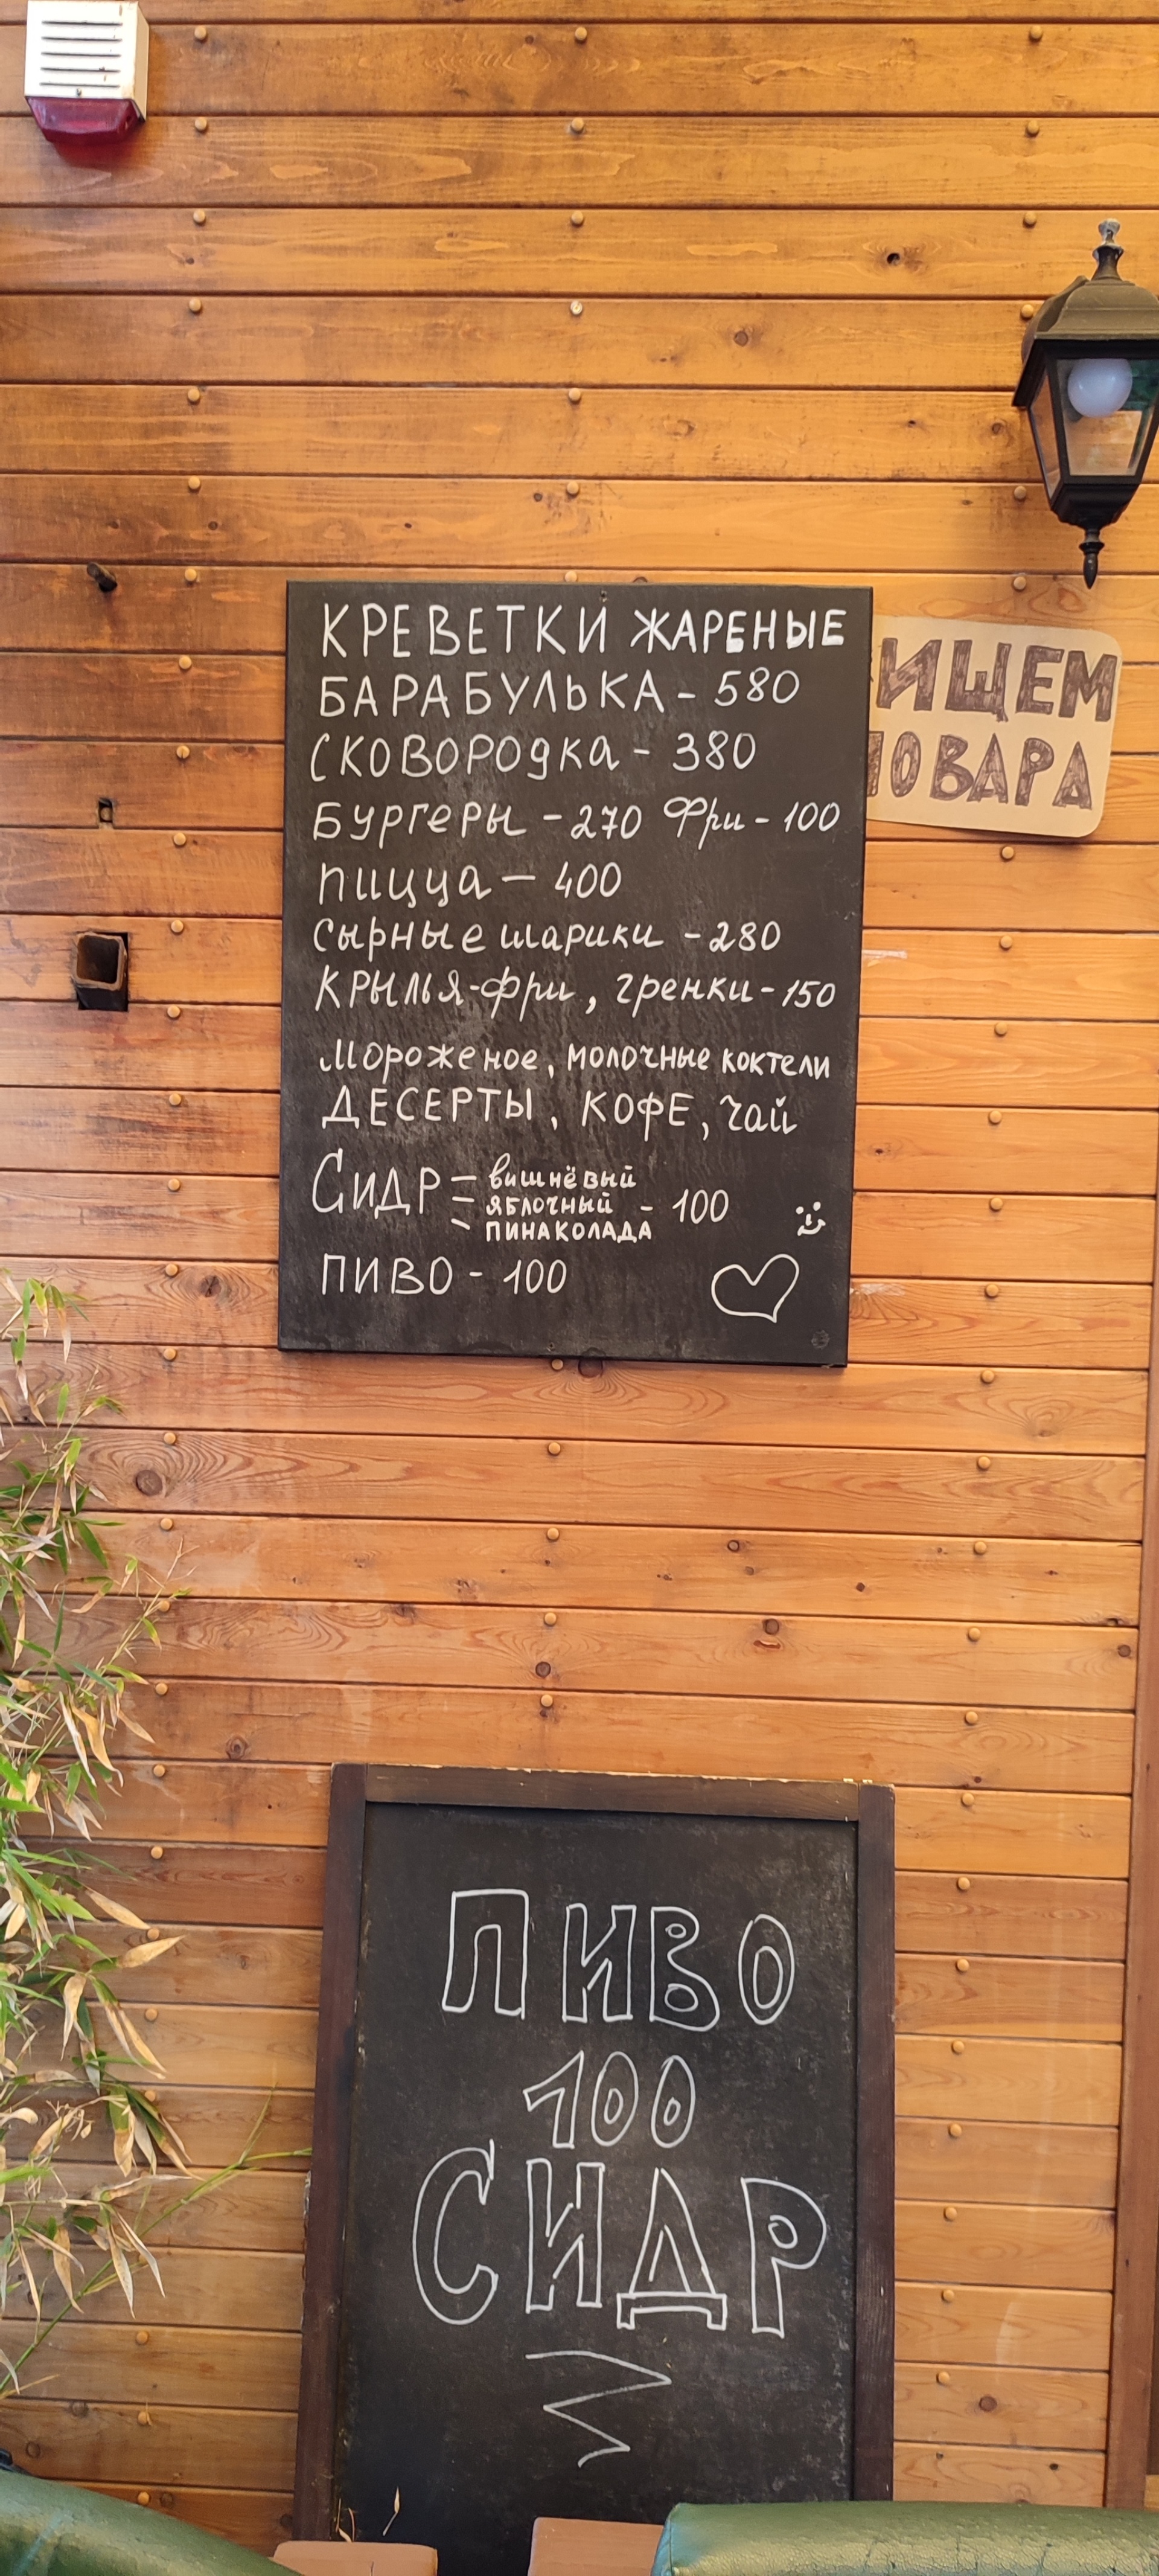 КРЕВЕТКИ ЖАРЕНЫЕ
БАРАБУЛЬКА - 580
СКОВОРОДКА - 380
БУРГЕРЫ - 270 Фри - 100
ПИЦЦА - 400
Сырные шарики - 280
Крылья-фри, гренки - 150
Мороженое, молочные коктели
ДЕСЕРТЫ, КОФЕ, чай
СИДР - вишнёвый
- яблочный - 100
- ПИНАКОЛАДА
ПИВО - 100
ИЩЕМ
ПОВАРА
ПИВО
100
СИДР